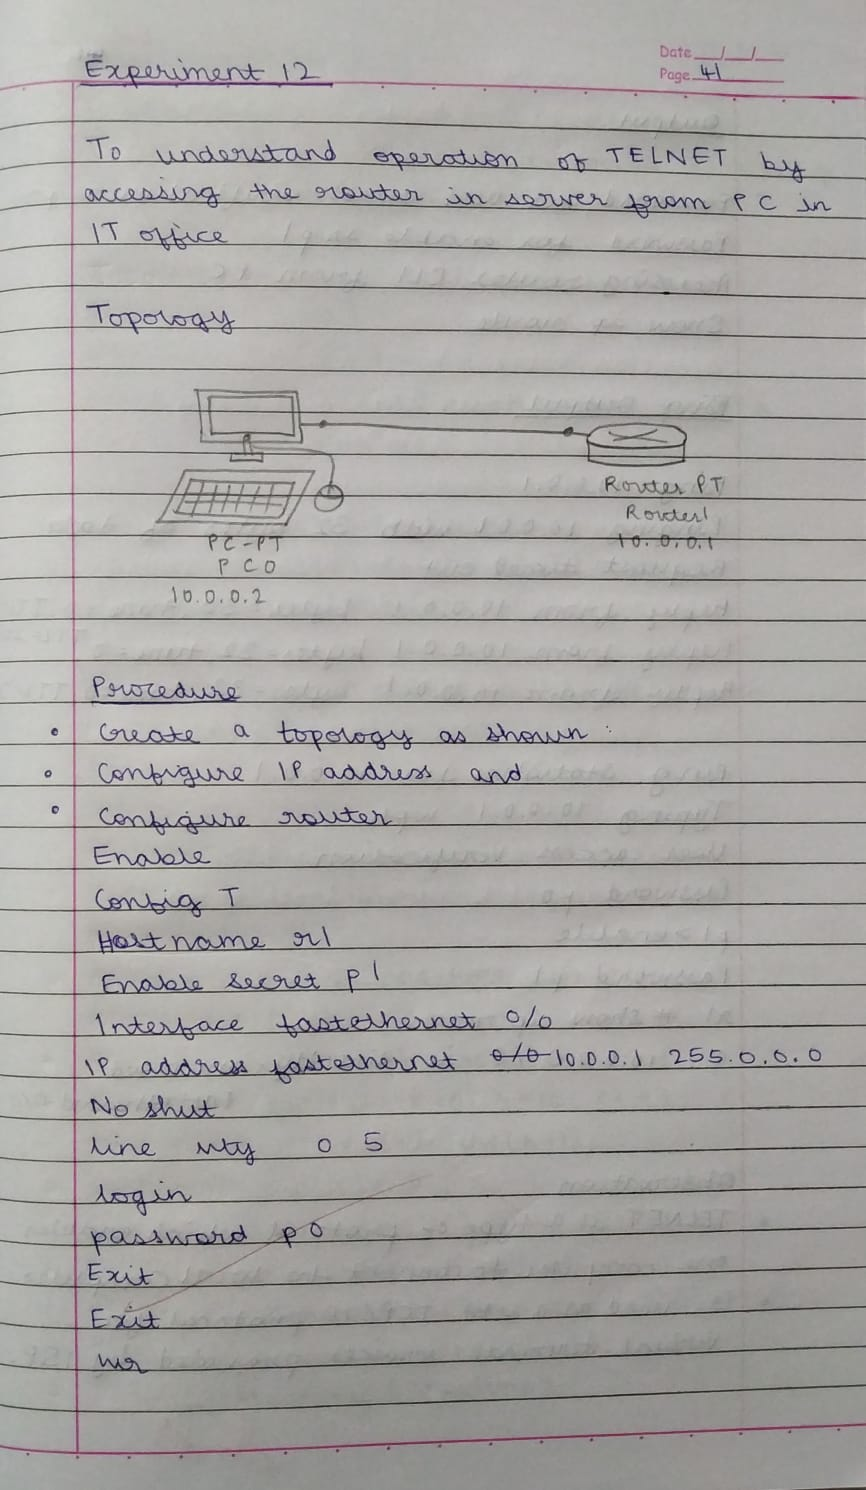 Experiment 12
Date __/__/__
Page 41
To understand operation of TELNET by
accessing the router in server from PC in
IT office
Topology
Router PT
Router1
10.0.0.1
PC-PT
PC0
10.0.0.2
Procedure
• Create a topology as shown :
• Configure IP address and
• Configure router
Enable
Config T
Hostname r1
Enable secret p1
Interface fastethernet 0/0
IP address fastethernet 0/0 10.0.0.1 255.0.0.0
No shut
line vty 0 5
login
password p0
Exit
Exit
wr